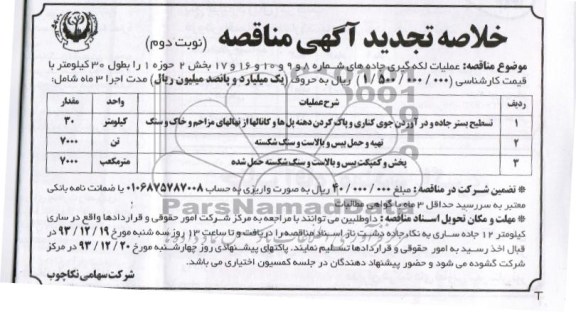 خلاصه تجدید آگهی مناقصه (نوبت دوم)
موضوع مناقصه: عملیات لکه گیری جاده های شماره ۸ و ۹ و ۱۰ و ۱۶ و ۱۷ بخش ۲ حوزه ۱ را بطول ۳۰ کیلومتر با
قیمت کارشناسی (۱/۵۰۰/۰۰۰/۰۰۰) ریال به حروف (یک میلیارد و پانصد میلیون ریال) مدت اجرا ۳ ماه شامل:
ردیف شرح عملیات واحد مقدار
۱ تسطیح بستر جاده و در آوردن جوی کناری و پاک کردن دهنه پل ها و کانالها از نهالهای مزاحم و خاک و سنگ کیلومتر ۳۰
۲ تهیه و حمل بیس و بالاست و سنگ شکسته تن ۷۰۰۰
۳ پخش و کمپکت بیس و بالاست و سنگ شکسته حمل شده مترمکعب ۷۰۰۰
* تضمین شرکت در مناقصه: مبلغ ۴۰/۰۰۰/۰۰۰ ریال به صورت واریزی به حساب ۰۱۰۶۸۷۵۷۸۷۰۰۸ یا ضمانت نامه بانکی
معتبر به سررسید حداقل ۳ ماه یا گواهی مطالبات
* مهلت و مکان تحویل اسناد مناقصه: داوطلبین می توانند با مراجعه به مرکز شرکت امور حقوقی و قراردادها واقع در ساری
کیلومتر ۱۲ جاده ساری به نکا رجاء دشت ناز اسناد مناقصه را دریافت و تا ساعت ۱۳ روز سه شنبه مورخ ۹۳/۱۲/۱۹ در
قبال اخذ رسید به امور حقوقی و قراردادها تسلیم نمایند. پاکتهای پیشنهادی روز چهارشنبه مورخ ۹۳/۱۲/۲۰ در مرکز
شرکت گشوده می شود و حضور پیشنهاد دهندگان در جلسه کمسیون اختیاری می باشد.
شرکت سهامی نکاچوب
ParsNamad
T